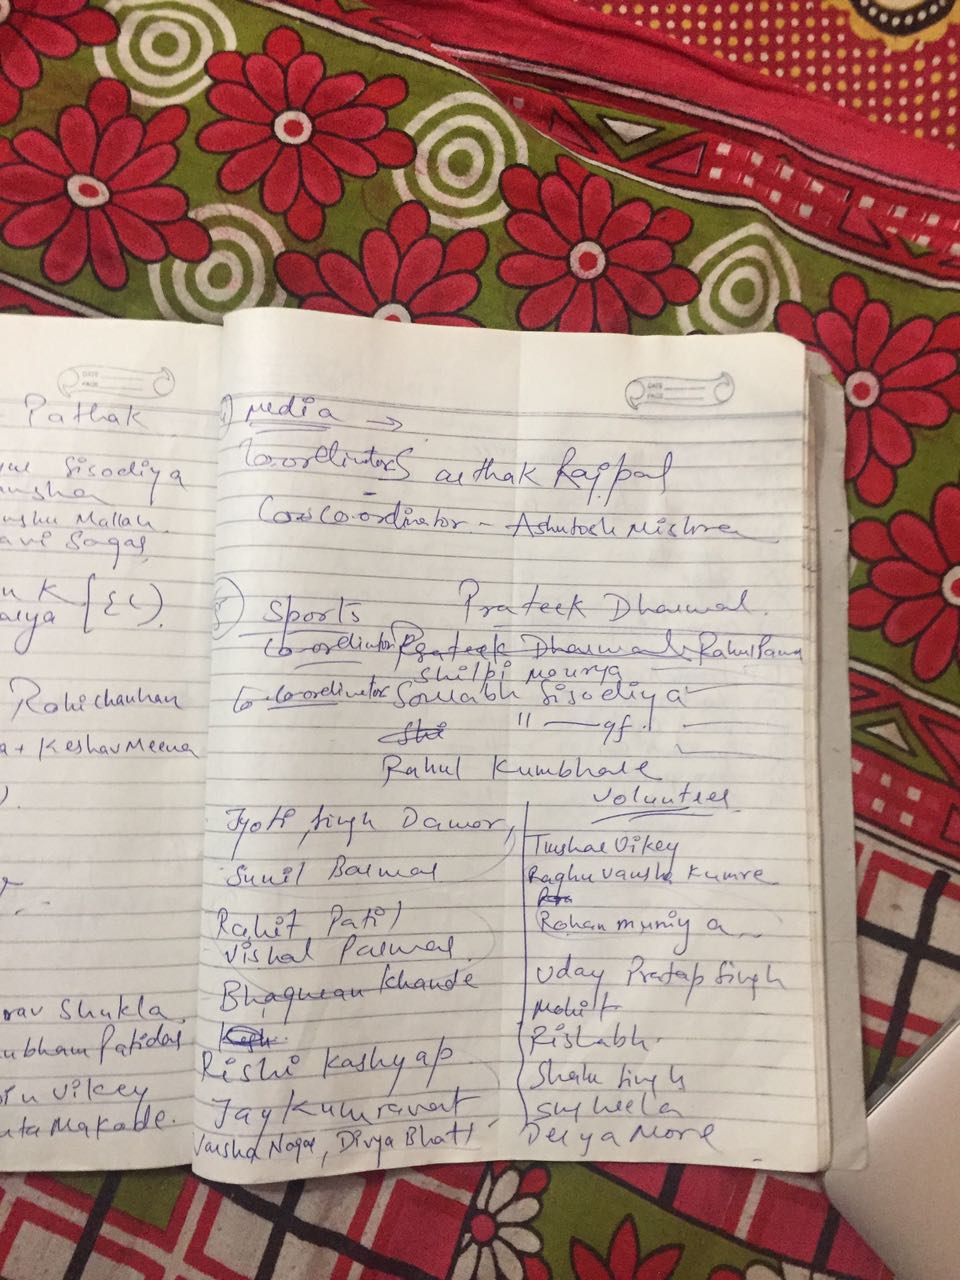 Pathak
Sisodiya
Mallah
Sagar
Rohi chauhan
+ Keshav Meena
Shukla
Shubham Patidar
Vikey
Makode.
DATE
PAGE
DATE
PAGE
Media →
Coordinator Sarthak Rajpal
Co-ordinator - Ashutosh Mishra
Sports Prateek Dharwal.
Co-ordinator Prateek Dharwal Rahul
Shilpi mourya
Co-Coordinator Sourabh Sisodiya
" gf.
Rahul Kumbhare
Volunteer
Jyoti Singh Damor,
Sunil Barman
Rohit Patil
Vishal Parmar
Bhagwan Khande
Rishi Kashyap
Jay Kumravat
Varsha Nagar, Divya Bhatt
Tushar Vikey
Raghuvansh Kumre
Rohan muniya
Uday Pratap Singh
Mohit
Rishabh.
Singh
Divya More